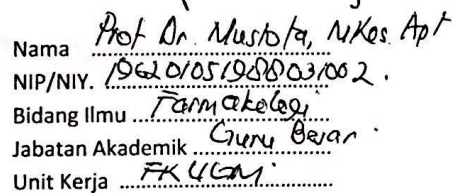 Nama Prof Dr. Mustofa, MKes. Apt
NIP/NIY. 196201051988031002.
Bidang Ilmu Farmakologi
Jabatan Akademik Guru Besar
Unit Kerja FK UGM